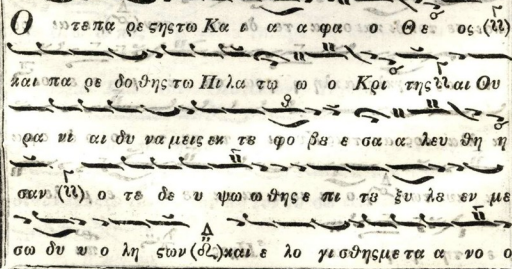 Ο τεπα ρεςηςτω Κα ι α α φα ο Θε ος
και πα ρε δο θης τω Πι λα τῳ ω ο Κρι της και Ου
ρα νι αι δυ να μεις εκ τȣ φο βȣ ε σα α λευ θη η
σαν ο τε δε υ ψω ω θης ε πι τȣ ξυ λȣ εν με
σω δυ υ ο λη ςων και ε λο γι σθης με τα α νο ο